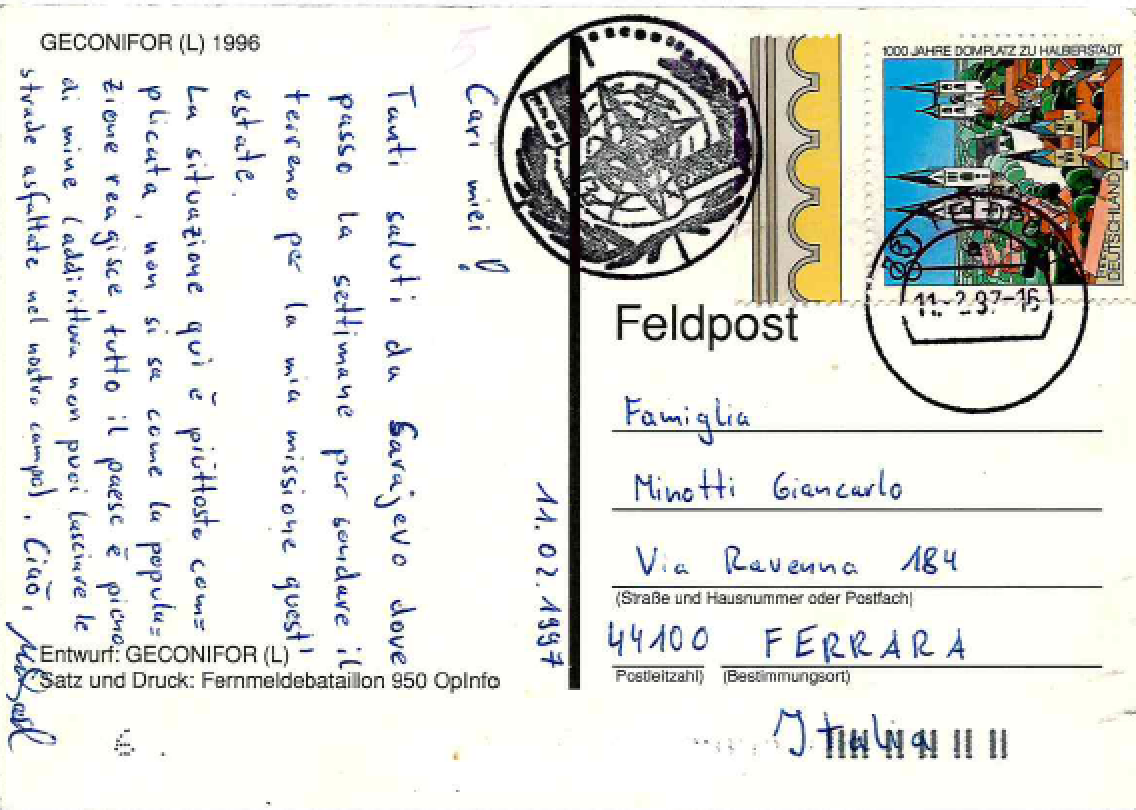 GECONIFOR (L) 1996
11.02.1997
Cari miei!
Tanti saluti da Sarajevo dove
passo la settimane per sondare il
terreno per la mia missione quest'
estate.
La situazione qui è piuttosto com=
plicata, non si sa come la popula=
zione reagisce, tutto il paese è pieno
di mine (addirittura non puoi lasciare le
strade asfaltate nel nostro campo). Ciao,
Entwurf: GECONIFOR (L)
Satz und Druck: Fernmeldebataillon 950 OpInfo
1000 JAHRE DOMPLATZ ZU HALBERSTADT
DEUTSCHLAND
11.-2.97-16
Feldpost
Famiglia
Minotti Giancarlo
Via Ravenna 184
(Straße und Hausnummer oder Postfach)
44100 FERRARA
(Postleitzahl) (Bestimmungsort)
Italia